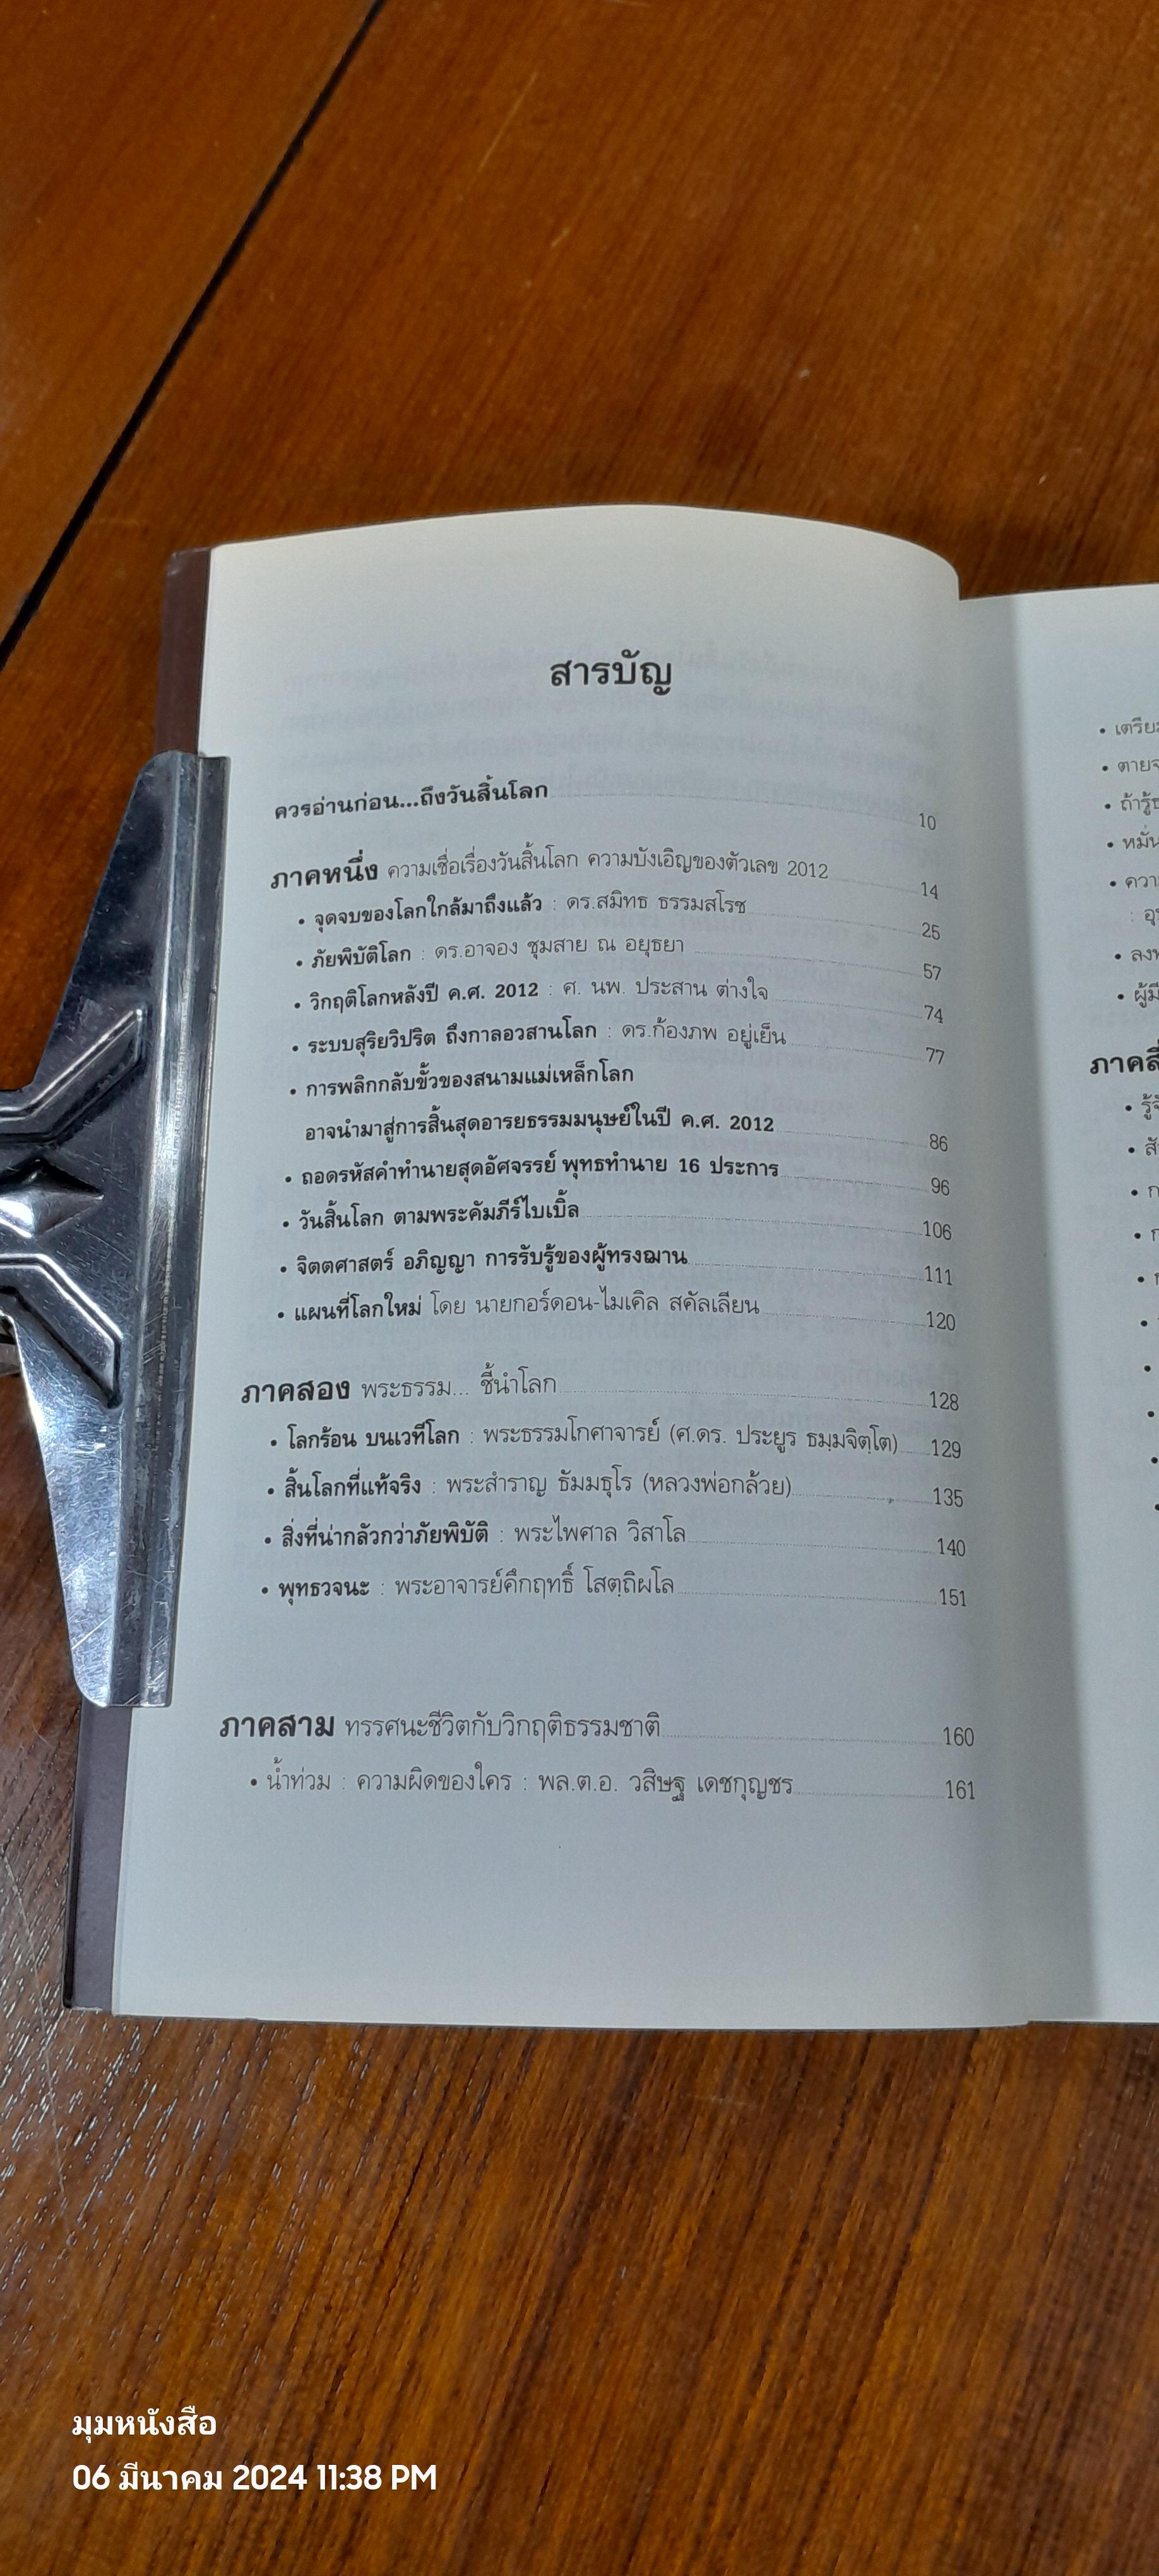 สารบัญ
ควรอ่านก่อน...ถึงวันสิ้นโลก 10
ภาคหนึ่ง ความเชื่อเรื่องวันสิ้นโลก ความบังเอิญของตัวเลข 2012 14
• จุดจบของโลกใกล้มาถึงแล้ว : ดร.สมิทธ ธรรมสโรช 25
• ภัยพิบัติโลก : ดร.อาจอง ชุมสาย ณ อยุธยา 57
• วิกฤติโลกหลังปี ค.ศ. 2012 : ศ. นพ. ประสาน ต่างใจ 74
• ระบบสุริยวิปริต ถึงกาลอวสานโลก : ดร.ก้องภพ อยู่เย็น 77
• การพลิกกลับขั้วของสนามแม่เหล็กโลก
อาจนำมาสู่การสิ้นสุดอารยธรรมมนุษย์ในปี ค.ศ. 2012 86
• ถอดรหัสคำทำนายสุดอัศจรรย์ พุทธทำนาย 16 ประการ 96
• วันสิ้นโลก ตามพระคัมภีร์ไบเบิ้ล 106
• จิตตศาสตร์ อภิญญา การรับรู้ของผู้ทรงฌาน 111
• แผนที่โลกใหม่ โดย นายกอร์ดอน-ไมเคิล สคัลเลียน 120
ภาคสอง พระธรรม... ชี้นำโลก 128
• โลกร้อน บนเวทีโลก : พระธรรมโกศาจารย์ (ศ.ดร. ประยูร ธมฺมจิตฺโต) 129
• สิ้นโลกที่แท้จริง : พระสำราญ ธัมมธุโร (หลวงพ่อกล้วย) 135
• สิ่งที่น่ากลัวกว่าภัยพิบัติ : พระไพศาล วิสาโล 140
• พุทธวจนะ : พระอาจารย์คึกฤทธิ์ โสตฺถิผโล 151
ภาคสาม ทรรศนะชีวิตกับวิกฤติธรรมชาติ 160
• น้ำท่วม : ความผิดของใคร : พล.ต.อ. วสิษฐ เดชกุญชร 161
มุมหนังสือ
06 มีนาคม 2024 11:38 PM